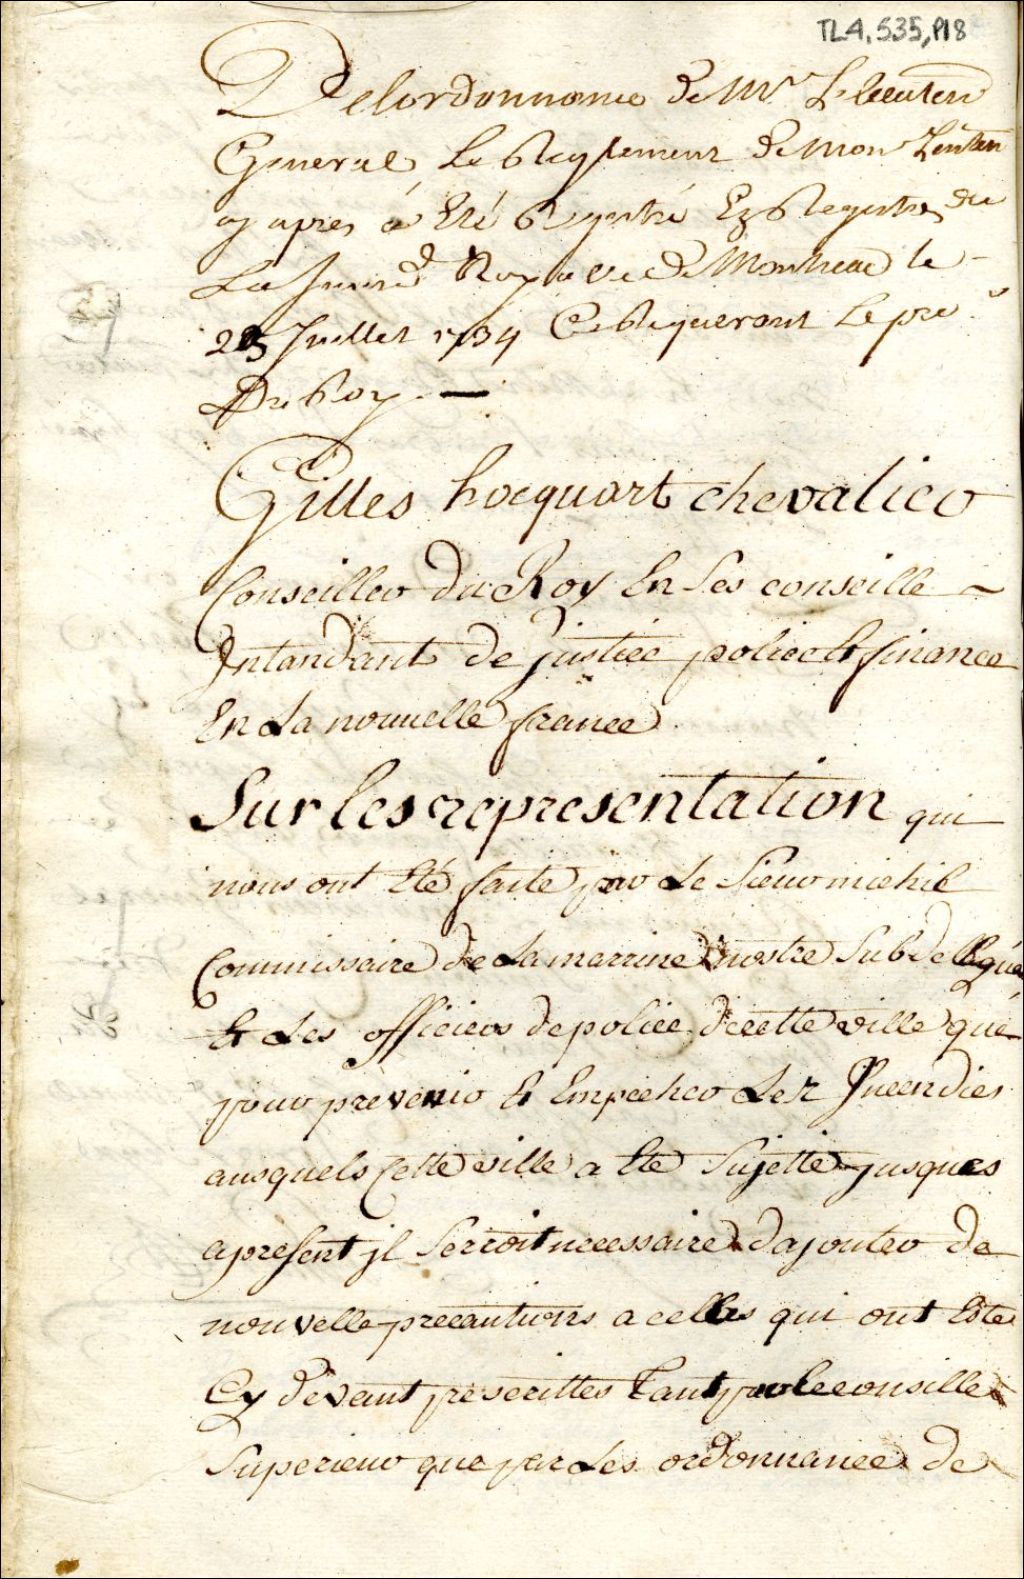 TL4, S35, P18
De lordonnance de Mr. Le lieuten
General Le Reglement de Mon Linten
cy apres a Eté Registré Ez Registres du
La Jurisd. Royalle de Montreal le
23 Juillet 1734 Ce Requerant Le pro.r
Du Roy. —
Gilles hocquart chevalier
Conseiller du Roy En Ses conseille ~
Intandant de justice police Et finance
En La nouuelle france
Sur les representation qui
nous ont Eté faite par Le Sieur michel
Commissaire de La marrine nostre Subdellegué
Et Les officiers de police de cette ville que
pour prevenir Et Empecher Les Incendies
ausquels Cette ville a Eté Sujette jusques
apresent jl Serroit necessaire dajouter de
nouvelle precautions a celles qui ont Este
Cy devant prescrittes Tant par le conseille
Superieur que par Les ordonnance de